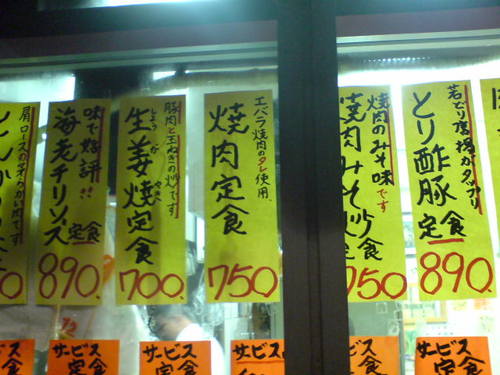 肩ロースの柔らかい肉です
味で好評!!
海老チリソース定食
890.
豚肉と玉ねぎの炒めです
しょうが やき
生姜焼定食
700.
エバラ焼肉のタレ使用
焼肉定食
750
焼肉のみそ味です
焼肉みそ炒め定食
750
若どり唐揚がタップリ
とり酢豚定食
890.
サービス
定食
サービス
定食
サービス
サービス
定食
サービス
定食